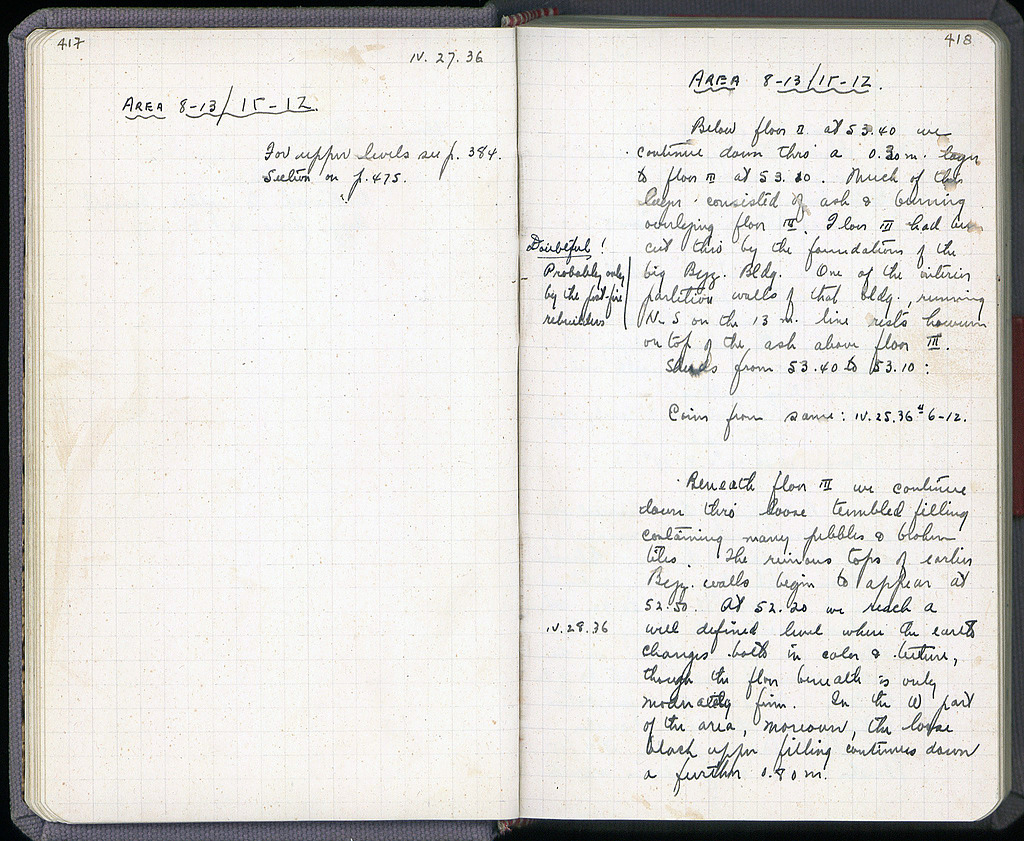 417
IV. 27. 36
AREA 8-13/ΙΓ-ΙΖ.
For upper levels see p. 384.
Section on p. 475.
418
AREA 8-13/ΙΓ-ΙΖ.
Below floor II at 53.40 we
continue down thro a 0.30 m. layer
to floor III at 53.10. Much of this
layer consisted of ash & burning
overlying floor III. Floor III had been
cut thro by the foundations of the
big Byz. Bldg. One of the interior
partition walls of that bldg., running
N-S on the 13 m. line rests however
on top of the ash above floor III.
Doubtful!
Probably only
by the post-fire
rebuilders
Sherds from 53.40 to 53.10:
Coins from same: IV.25.36 # 6-12.
Beneath floor III we continue
down thro loose tumbled filling
containing many pebbles & broken
tiles. The ruinous tops of earlier
Byz. walls begin to appear at
52.50. At 52.20 we reach a
IV.28.36
well defined level where the earth
changes both in color & texture,
though the floor beneath is only
moderately firm. In the W part
of the area, moreover, the loose
black upper filling continues down
a further 0.80 m.